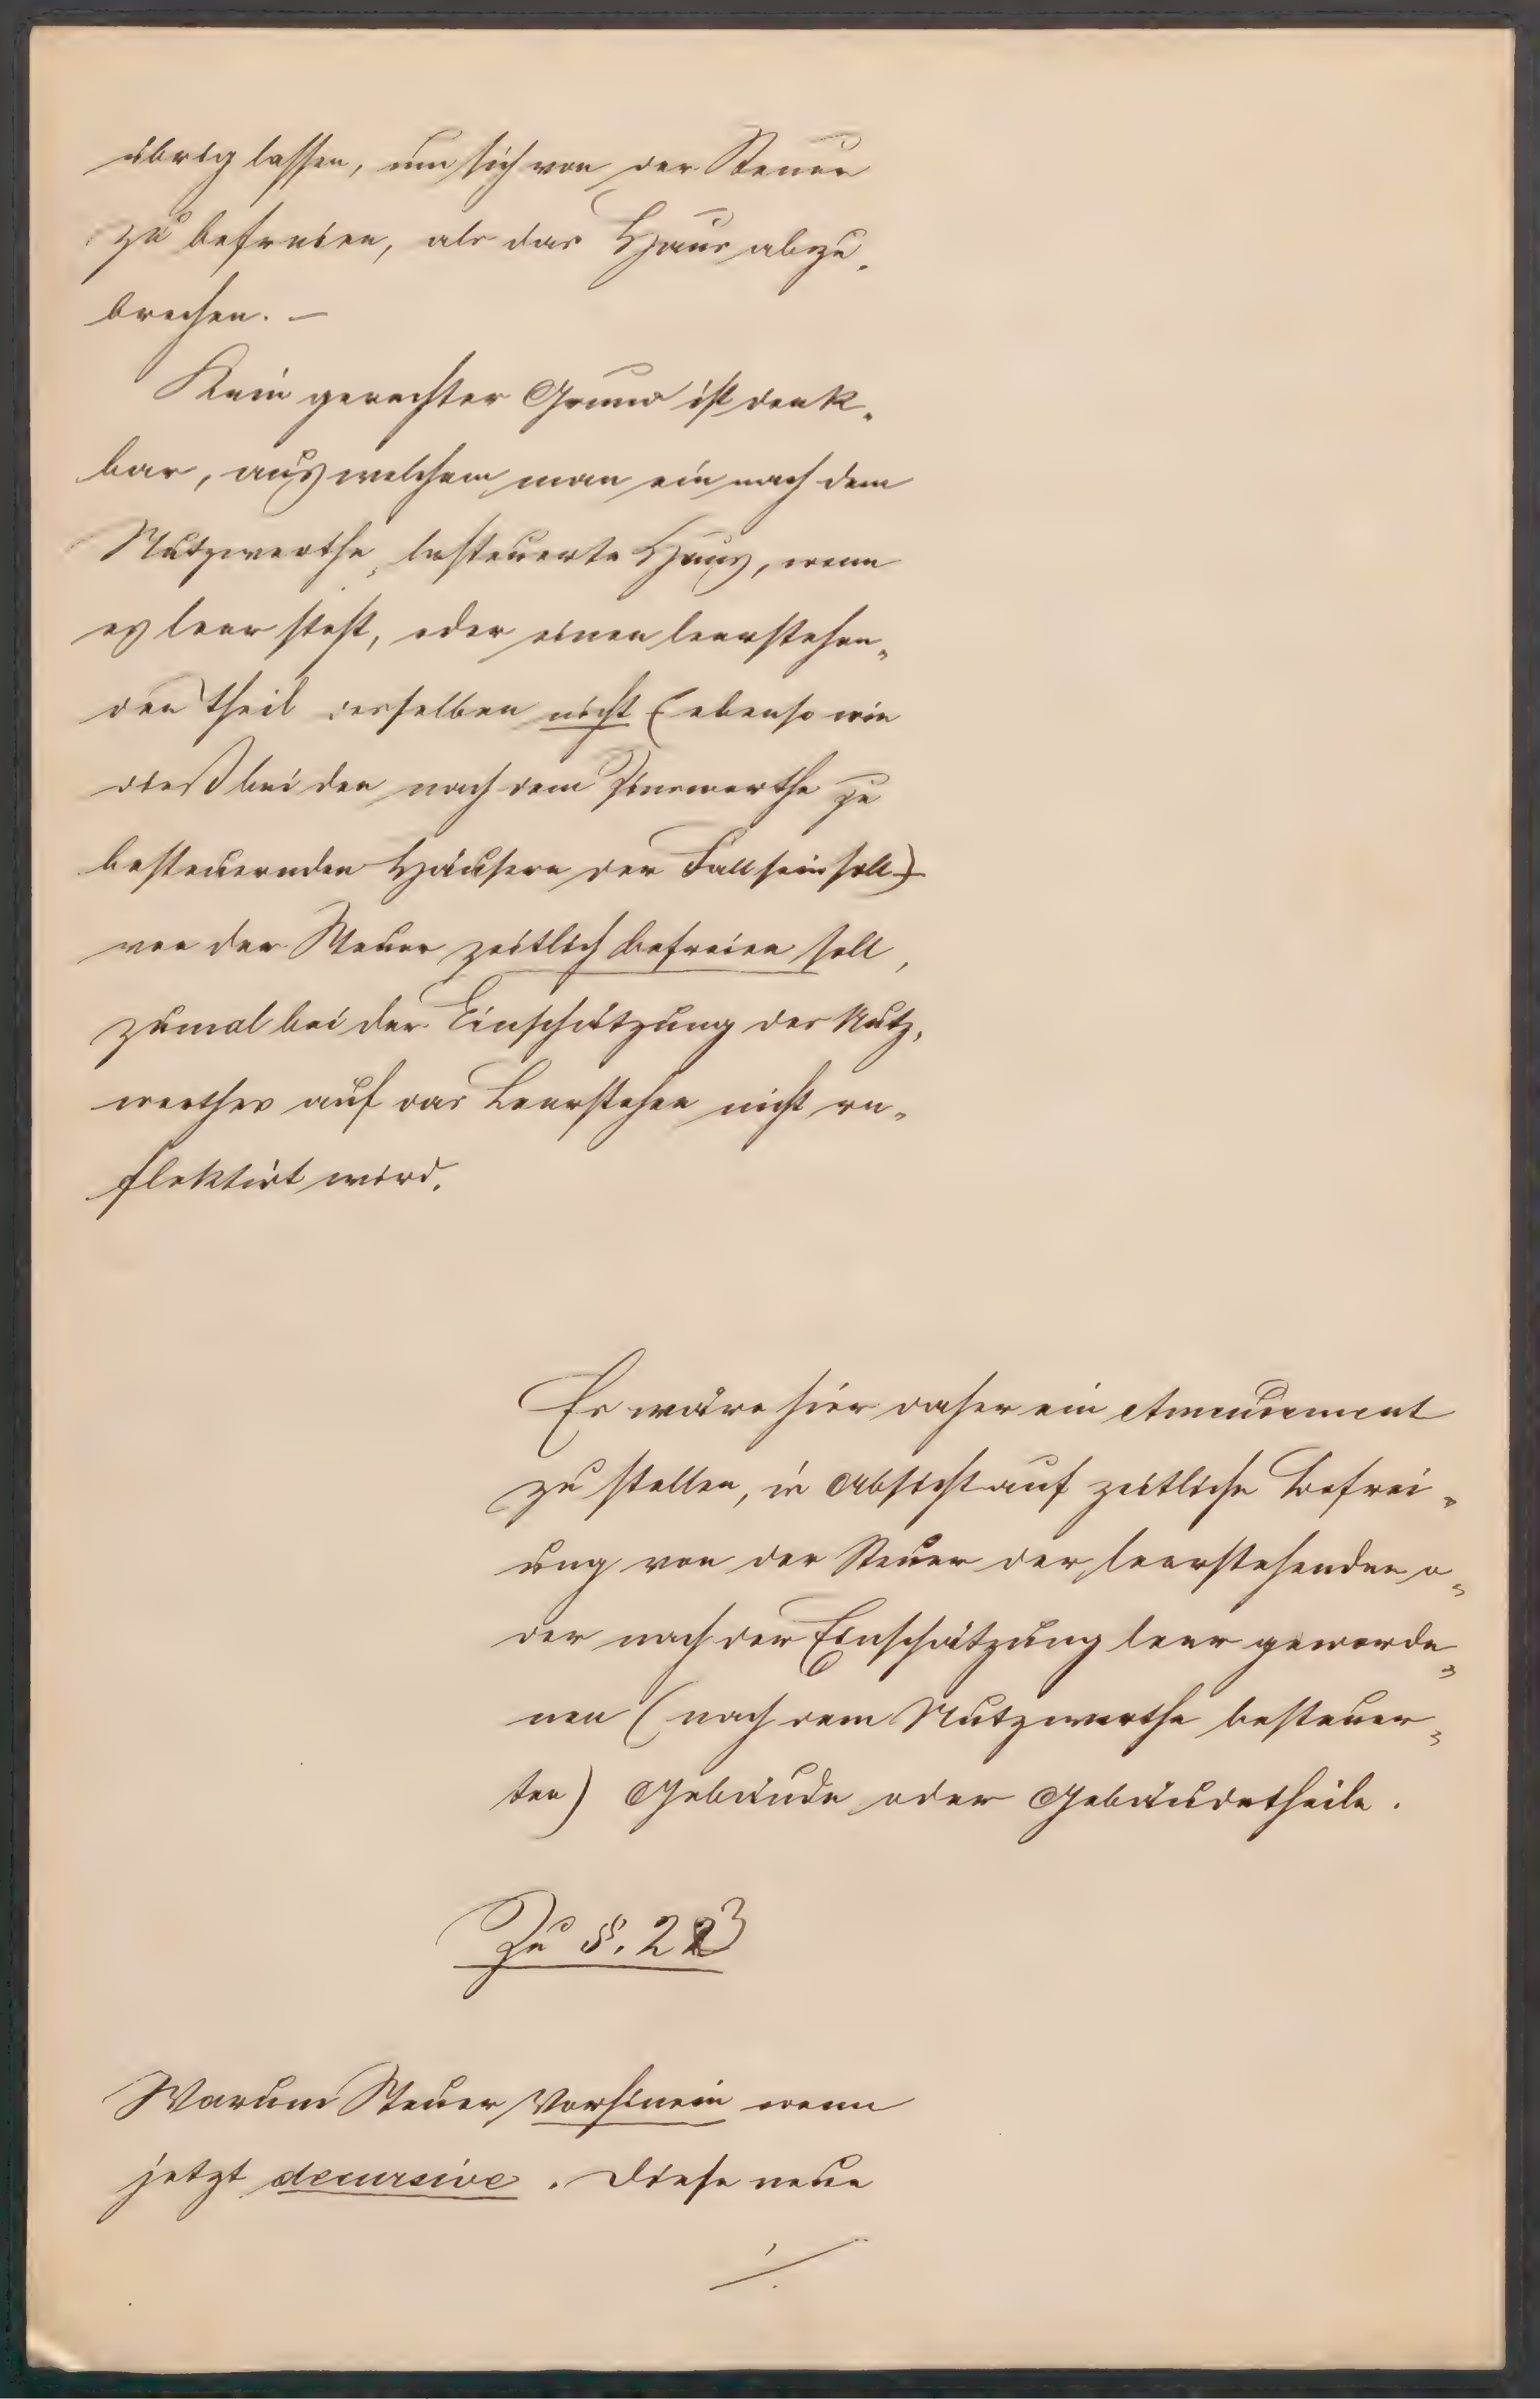 übrig lassen, um sich von der Steuer
zu befreien, als das Haus abzu-
brechen. –
Kein gerechter Grund ist denk-
bar, aus welchem man ein nach dem
Nutzwerthe besteuerte Haus, wenn
es leer steht, oder einen leerstehen-
den Theil desselben nicht (ebenso wie
dieß bei den nach dem Zinswerthe zu
besteuernden Häusern der Fall sein soll)
von der Steuer zeitlich befreien soll,
zumal bei der Einschätzung des Nutz-
werthes auf das Leerstehen nicht re-
flektirt wird.
Es wäre hier daher ein Amendement
zu stellen, in Absicht auf zeitliche Befrei-
ung von der Steuer der leerstehenden o-
der nach der Einschätzung leer geworde-
nen (nach dem Nutzwerthe besteuer-
ten) Gebäude oder Gebäudetheile.
Zu §. 23
Warum Steuer Vorhinein wenn
jetzt decursive. Diese neue
./.